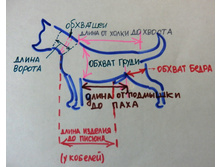 ОБХВАТ ШЕИ
ДЛИНА ОТ ХОЛКИ ДО ХВОСТА
ДЛИНА
ВОРОТА
ОБХВАТ ГРУДИ
ОБХВАТ БЕДРА
ДЛИНА ОТ ПОДМЫШКИ
ДО ПАХА
ДЛИНА ИЗДЕЛИЯ
ДО ПИСЮНА
(У КОБЕЛЕЙ)